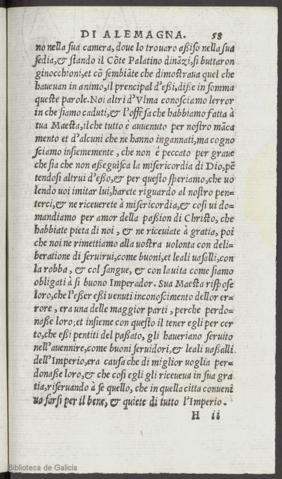 DI ALEMAGNA. 58
no nella sua camera, doue lo trouaro aßiso nella sua
sedia,& stando il Cõte Palatino dinãzi,si buttaron
ginocchioni,et cõ sembiãte che dimostraua quel che
haueuan in animo,il prencipal d'eßi,diße in somma
queste parole.Noi altri d'Vlma conosciamo l'error
in che siamo caduti,& l'offesa che habbiamo fatta à
tua Maestà,ilche tutto è auuenuto per nostro mãca
mento et d'alcuni che ne hanno ingannati,ma cogno
sciamo insiememente, che non è peccato per graue
che sia che non aßeguisca la misericordia di Dio,pẽ
tendosi altrui d'eßo,& per questo speriamo,che uo
lendo uoi imitar lui,harete riguardo al nostro pen-
terci,& ne riceuerete à misericordia,& cosi ui do-
mandiamo per amor della paßion di Christo, che
habbiate pietà di noi , & ne riceuiate à gratia, poi
che noi ne rimettiamo alla uostra uolontà con deli-
beratione di seruirui,come buoni,et leali uasalli,con
la robba, & col sangue, & con la uita come siamo
obligati à si buono Imperador. Sua Maestà rispose
loro,che l'eßer eßi uenuti in conoscimento dellor er-
rore , era una delle maggior parti , perche perdo-
naße loro;et insieme con questo il tener egli per cer
to,che eßi pentiti del paßato, gli haueriano seruito
nell'auuenire,come buoni seruidori,& leali uaßalli
dell'Imperio,era causa che di miglior uoglia per-
donaße loro,& che cosi egli gli riceueua in sua gra
tia,riseruando à se quello, che in quella città conueni
ua farsi per il bene, & quiete di tutto l'Imperio.
H ii
Biblioteca de Galicia